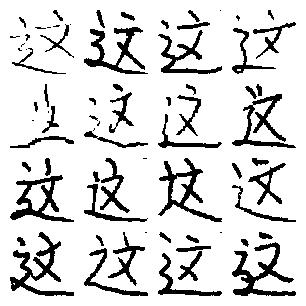 这这这这
这这这
这这这这
这这这这